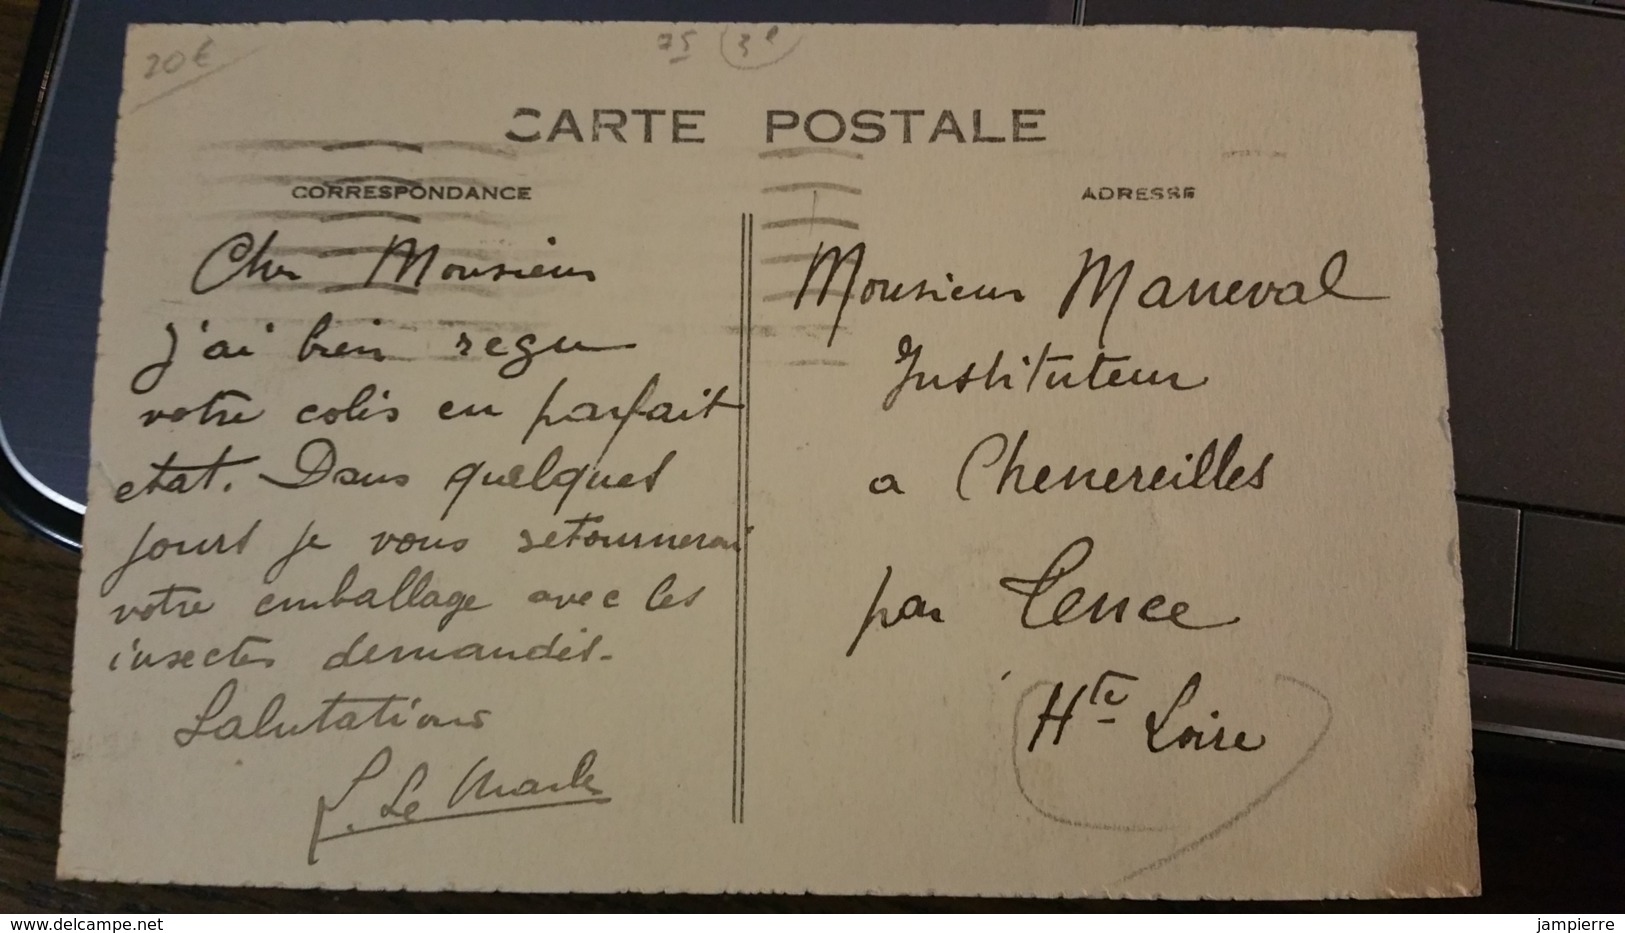 20€
75 3e
CARTE POSTALE
CORRESPONDANCE
Cher Monsieur
J'ai bien reçu
votre colis en parfait
etat. Dans quelques
jours je vous retournerai
votre emballage avec les
insectes demandés.
Salutations
Le
ADRESSE
Monsieur Manneval
Instituteur
a Chenereilles
par Tence
Hte Loire
www.delcampe.net
jampierre